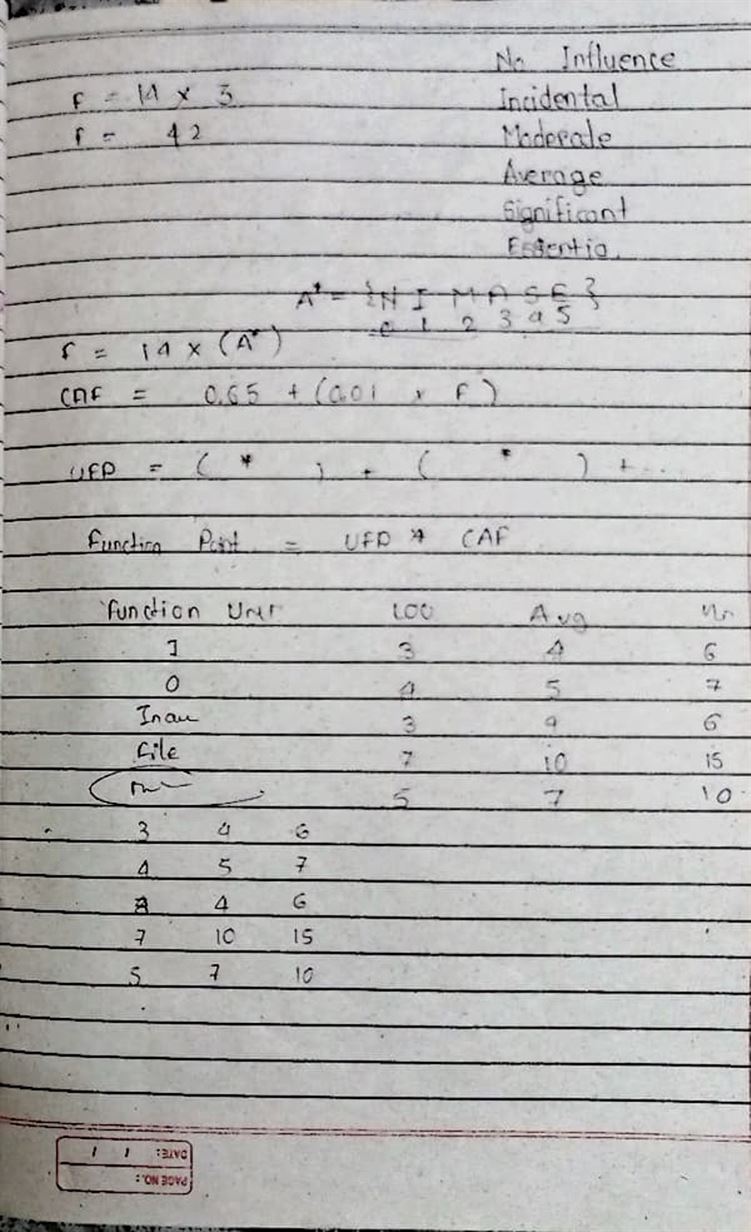 No Influence
F = 14 x 3 Incidental
F = 42 Moderate
Average
Significant
Essentia
A* = {N I M A S E}
0 1 2 3 4 5
F = 14 x (A*)
CAF = 0.65 + (0.01 x F)
UFP = ( * ) + ( * ) + ...
Function Point = UFP * CAF
Function Unit Low Avg
I 3 4 6
O 4 5 7
3 4 6
File 7 10 15
5 7 10
3 4 6
4 5 7
3 4 6
7 10 15
5 7 10
DATE: / /
PAGE NO.: